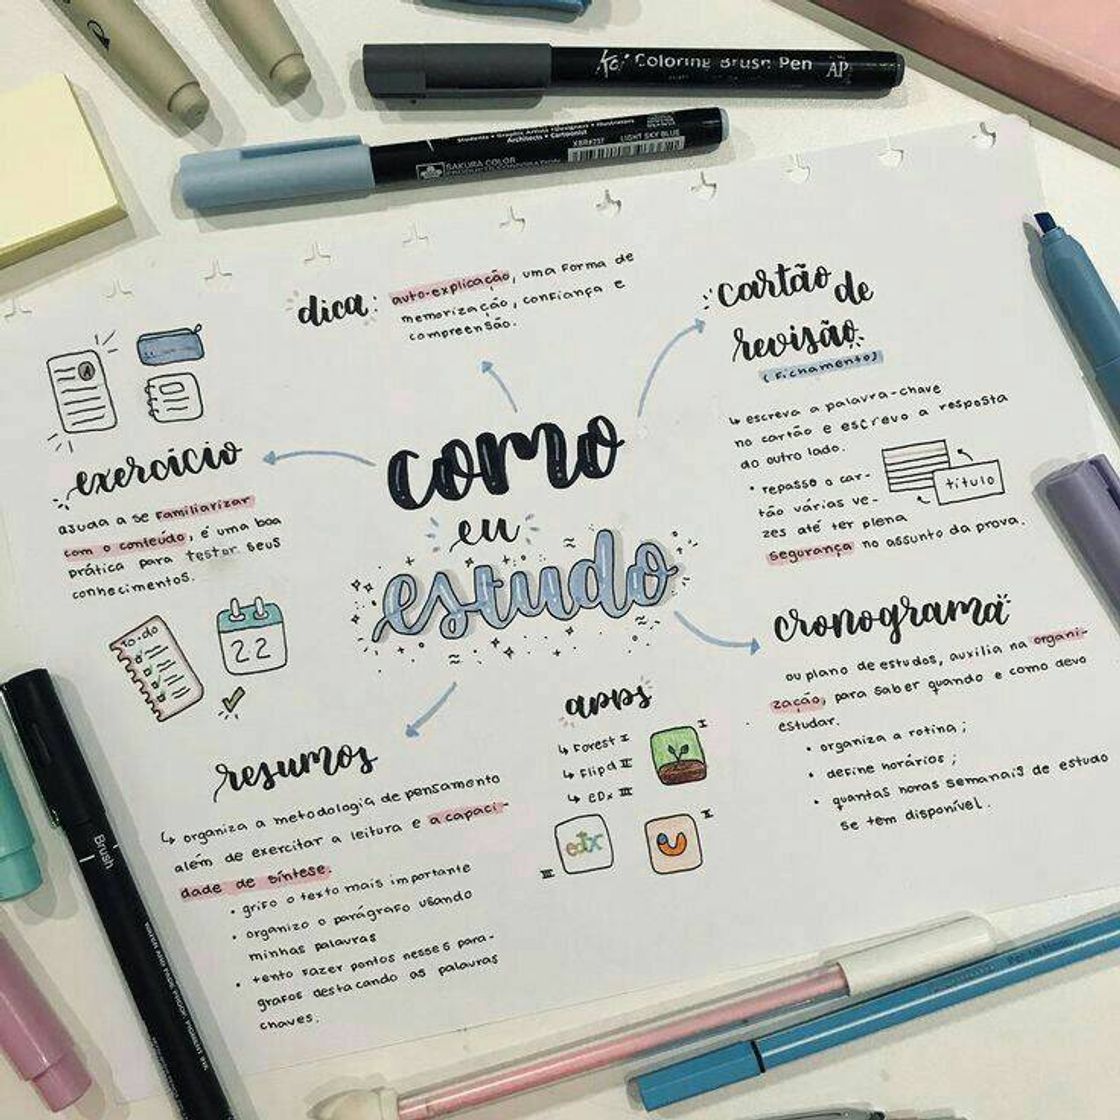 Koi Coloring Brush Pen
AP
Students • Graphic Artists • Designers • Illustrators
Architects • Cartoonist
SAKURA COLOR
PRODUCTS CORPORATION
XBR#757 LIGHT SKY BLUE
dica:
auto-explicação, uma forma de
memorização, confiança e
compreensão.
cartão de
revisão
(fichamento)
↳ escreva a palavra-chave
no cartão e escrevo a resposta
do outro lado.
• repasso o car-
tão várias ve-
zes até ter plena
segurança no assunto da prova.
título
A
exercício
ajuda a se familiarizar
com o conteúdo, é uma boa
prática para testar seus
conhecimentos.
como
eu
estudo
to-do
22
cronograma
ou plano de estudos, auxilia na organi-
zação, para saber quando e como devo
estudar.
• organiza a rotina;
• define horários;
• quantas horas semanais de estudo
se tem disponível.
apps
↳ Forest I
↳ Flipd II
↳ eDx III
I
edx
III
II
resumos
↳ organiza a metodologia de pensamento
além de exercitar a leitura e a capaci-
dade de síntese.
• grifo o texto mais importante
• organizo o parágrafo usando
minhas palavras
• tento fazer pontos nesses pará-
grafos destacando as palavras
chaves.
Brush